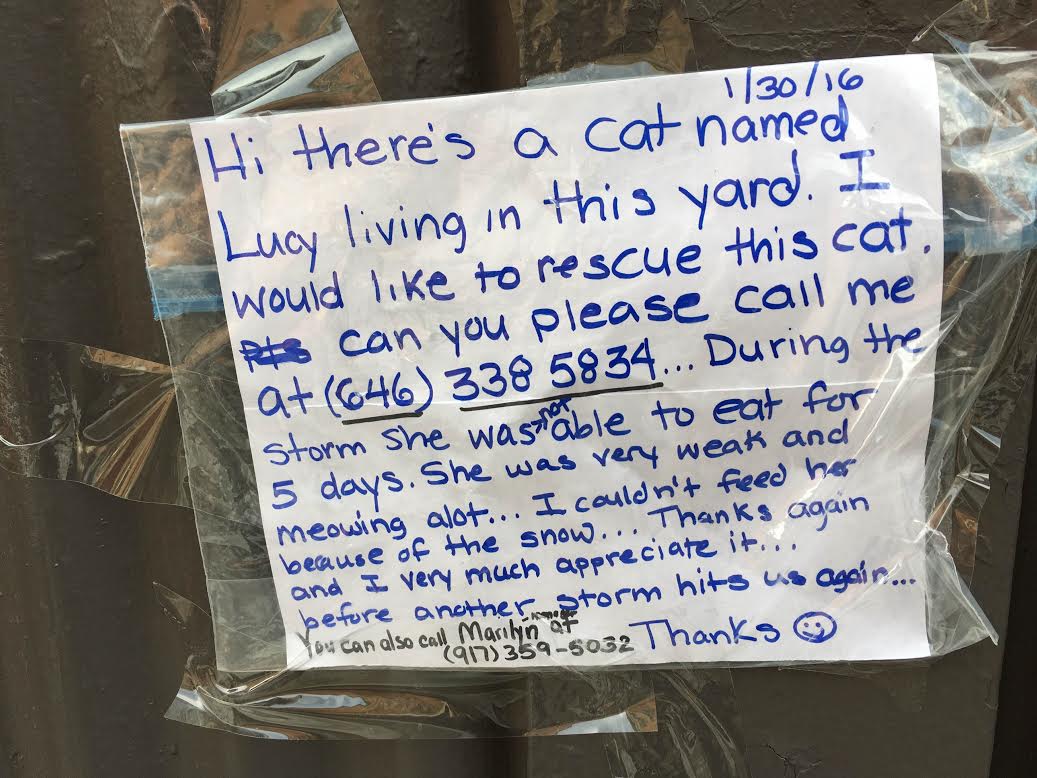 1/30/16
Hi there's a cat named
Lucy living in this yard. I
would like to rescue this cat.
can you please call me
at (646) 338 5834... During the
storm she was not able to eat for
5 days. She was very weak and
meowing alot... I couldn't feed her
because of the snow... Thanks again
and I very much appreciate it...
before another storm hits us again...
You can also call Marilyn at
(917) 359-5032 Thanks